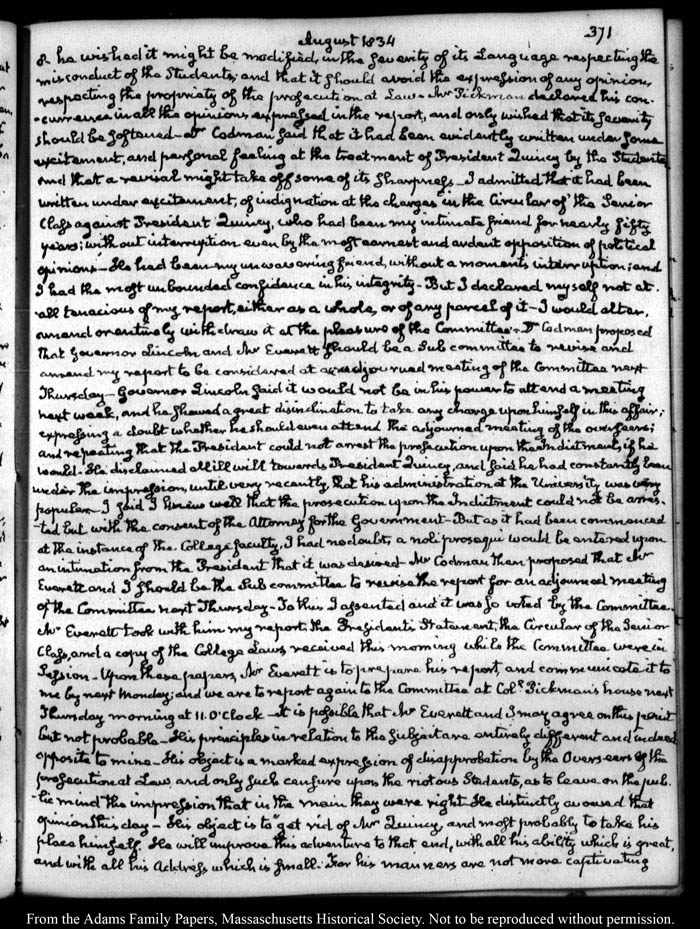 August 1834
371
& he wished it might be modified, in the severity of its Language respecting the
misconduct of the Students; and that it should avoid the expression of any opinion,
respecting the propriety of the prosecution at Law. Mr Pickman declared his con-
-currence in all the opinions expressed in the report, and only wished that its severity
should be softened— Mr Codman said that it had been evidently written under some
excitement, and personal feeling at the treatment of President Quincy by the Students
and that a revisal might take off some of its sharpness— I admitted that it had been
written under excitement, of indignation at the charges in the Circular of the Senior
Class against President Quincy, who had been my intimate friend for nearly fifty
years; without interruption even by the most earnest and ardent opposition of political
opinions— He had been my unwavering friend, without a moment's interruption; and
I had the most unbounded confidence in his integrity— But I declared myself not at
all tenacious of my report, either as a whole, or of any parcel of it— I would alter,
amend or entirely withdraw it at the pleasure of the Committee— Dr Codman proposed
that Governor Lincoln and Mr Everett should be a Sub committee to revise and
amend my report to be considered at an adjourned meeting of the Committee next
Thursday— Governor Lincoln said it would not be in his power to attend a meeting
next week, and he shewed a great disinclination to take any charge upon himself in this affair;
expressing a doubt whether he should even attend the adjourned meeting of the overseers;
and repeating that the President could not arrest the prosecution upon the Indictment, if he
would— He disclaimed all ill will towards President Quincy, and said he had constantly been
under the impression, until very recently, that his administration at the University, was very
popular— I said I knew well that the prosecution upon the Indictment could not be arres-
-ted but with the consent of the Attorney for the Government— But as it had been commenced
at the instance of the College faculty, I had no doubt, a noli prosequi would be entered upon
an intimation from the President that it was desired— Mr Codman then proposed that Mr
Everett and I should be the Sub committee to revise the report for an adjourned meeting
of the Committee next Thursday— To this I assented and it was so voted by the Committee.
Mr Everett took with him my report, the President's Statement, the Circular of the Senior
Class, and a copy of the College Laws received this morning while the Committee were in
Session— Upon these papers, Mr Everett is to prepare his report, and communicate it to
me by next Monday; and we are to report again to the Committee at Colo. Pickman's house next
Thursday morning at 11. O'Clock— It is possible that Mr Everett and I may agree on this point
but not probable— His principles in relation to the subject are entirely different and indeed
opposite to mine— His object is a marked expression of disapprobation by the Overseers of the
prosecution at Law and only such censure upon the riotous Students, as to leave on the pub-
-lic mind the impression that in the main they were right— He distinctly avowed that
opinion this day— His object is to get rid of Mr Quincy, and most probably to take his
place himself. He will improve this adventure to that end, with all his ability which is great,
and with all his Address which is small— For his manners are not more captivating
From the Adams Family Papers, Massachusetts Historical Society. Not to be reproduced without permission.